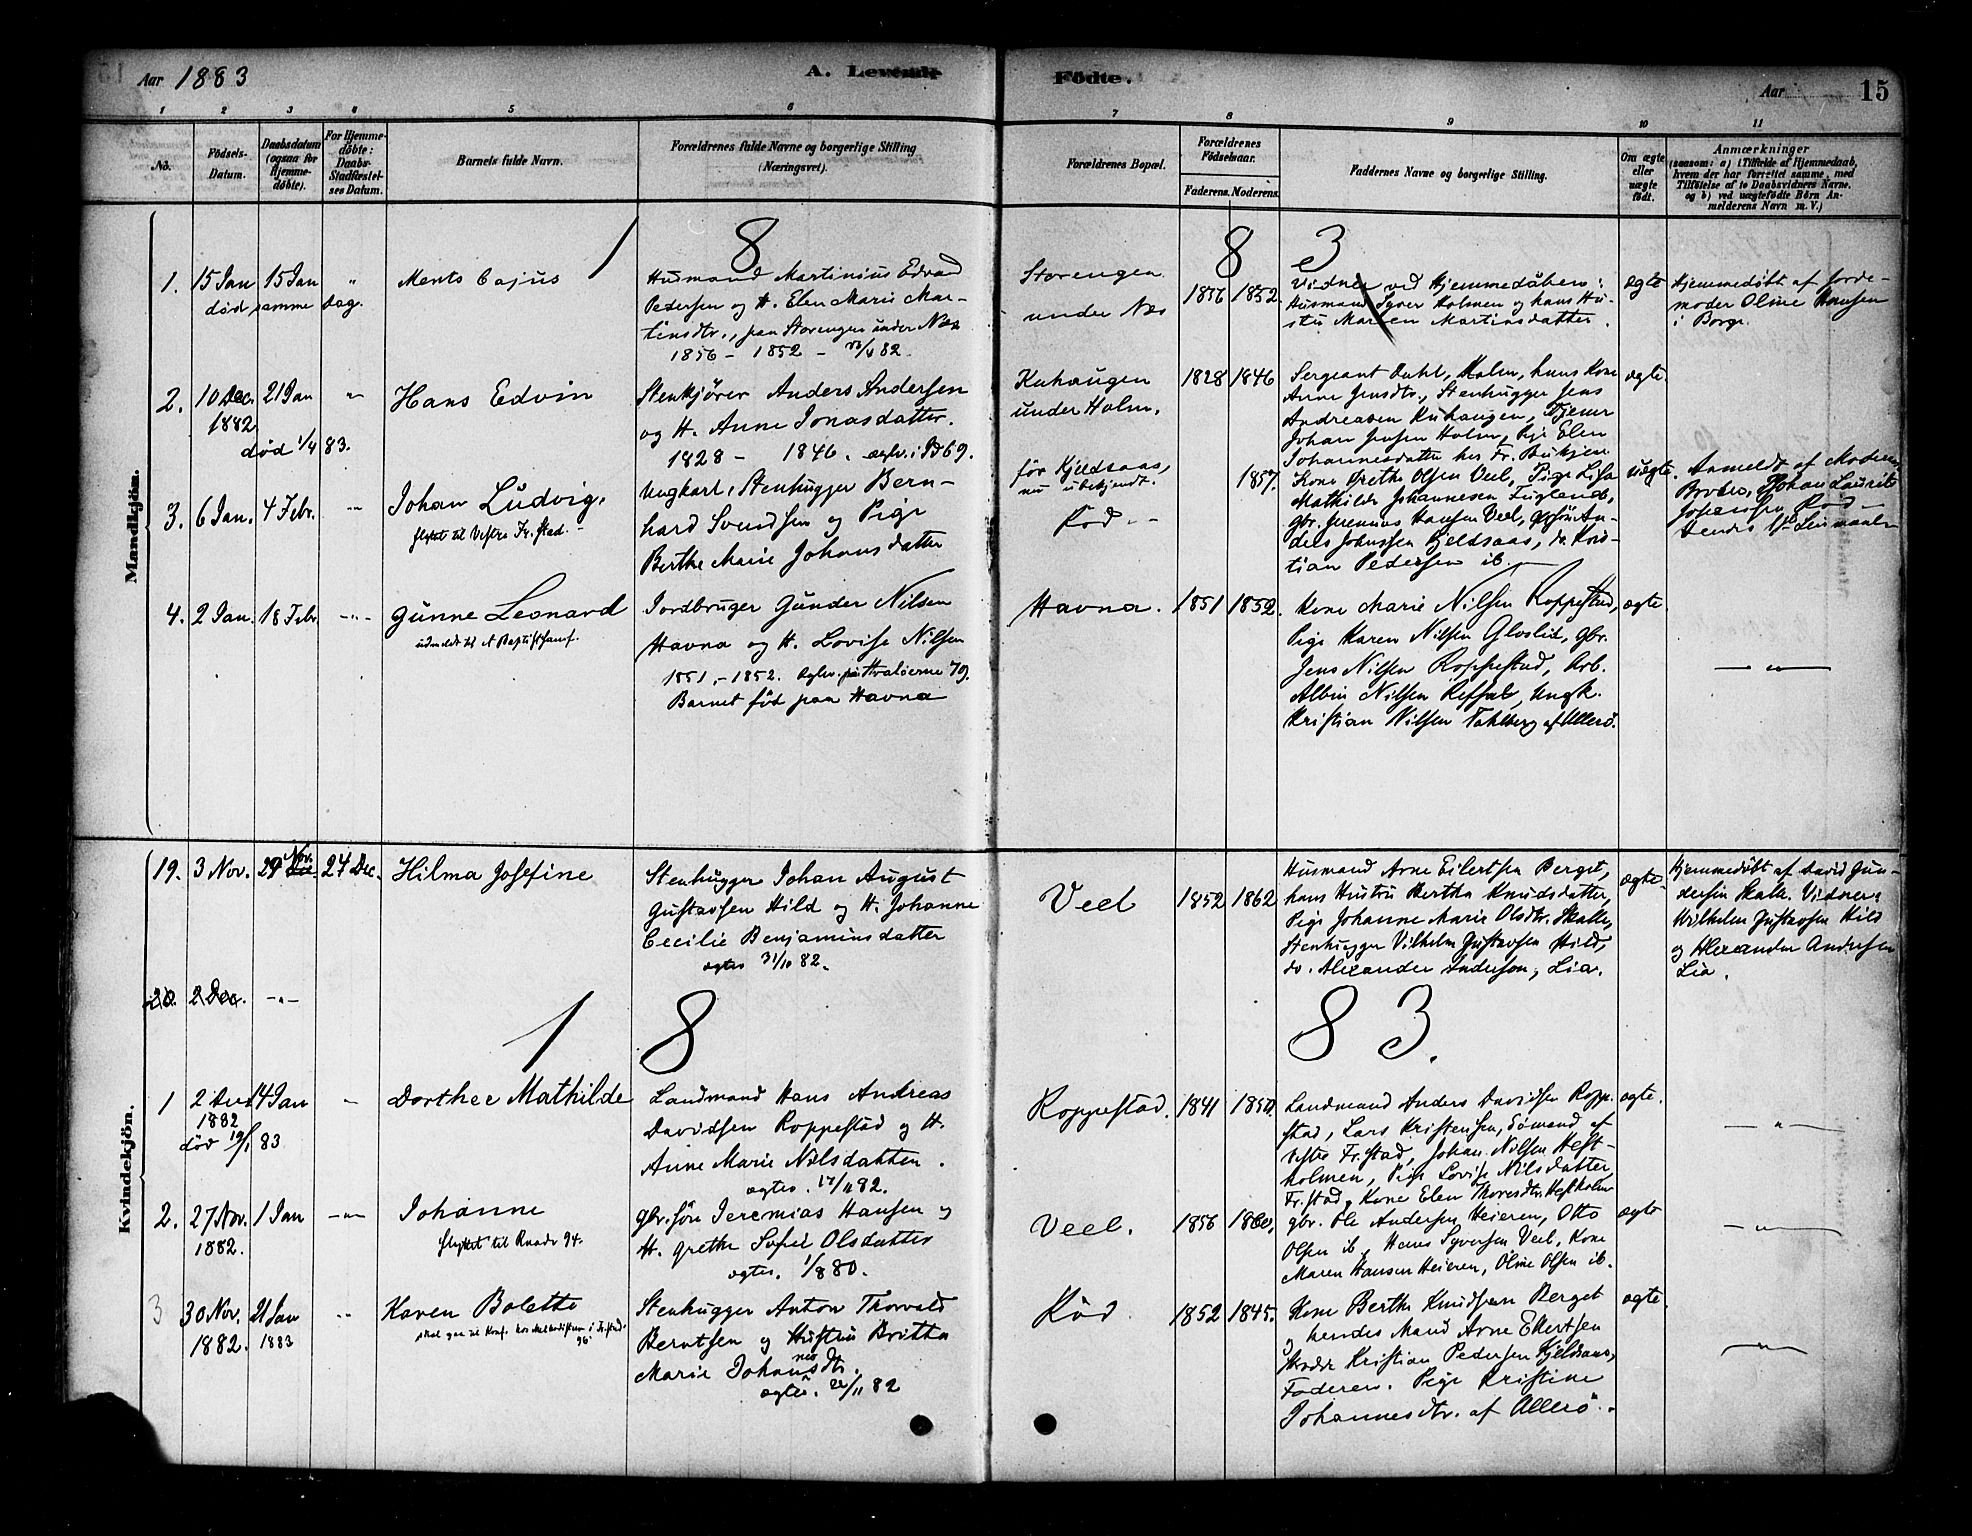 Aar 1883
A. Levende
Födte.
Aar
15
1
2
3
4
5
6
7
8
9
10
11
No.
Födsels-
Datum.
Daabsdatum
(ogsaa for
Hjemme-
döbte).
For Hjemme-
döbte:
Daabs-
Stadfæstel-
ses Datum.
Barnets fulde Navn.
Forældrenes fulde Navne og borgerlige Stilling
(Næringsvei).
Forældrenes Bopæl.
Forældrenes
Födselsaar.
Faderens.
Moderens.
Faddernes Navne og borgerlige Stilling.
Om ægte
eller
uægte
födt.
Anmærkninger
(saasom: a) i Tilfælde af Hjemmedaab,
hvem der har forrettet samme, med
Tilföielse af to Daabsvidners Navne,
og b) ved uægtefödte Börn An-
melderens Navn m. V.)
Mandkjön.
1 8 8 3
1. 15 Jan 15 Jan "
død samme dag.
Ments Cajus
Husmand Martinius Edvard
Pedersen og H. Elen Marie Mar-
tinsdtr., paa Storengen under Næs
1856 - 1852 - 82.
Storengen
under Næs
1856 1852.
Vidner ved Hjemmedåben:
Husmand Syver Holmen og hans Hu-
stru Maren Martinsdatter.
ægte
Hjemmedøbt af Jorde-
moder Oline Hansen
i Borge.
2. 10 Dec. 21 Jan "
1882
død 1/4 83.
Hans Edvin
Stenkjører Anders Andersen
og H. Anne Jonasdatter.
1828 - 1846. ægtev. i 1869.
Kuhaugen
under Holm.
1828 1846
Sergeant Dahl, Holm, hans Kone
Anne Jensdtr., Stenhugger Jens
Andreasen Kuhaugen, Tjener
Johan Jensen Holm, Pige Elen
Johannesdatter hos Fr.
ægte.
3. 6 Jan. 4 Febr. "
Johan Ludvig.
flyttet til Vestre Fr.stad.
Ungkarl, Stenhugger Bern-
hard Svendsen og Pige
Berthe Marie Johansdatter
før Kjeldsaas,
nu ubekjendt.
Rød. -
1857.
Kone Grethe Olsen Veel, Pige Lisa
Mathilde Johannesen Fuglevik,
gbr. Jeremias Hansen Veel, An-
ders Johnssen Kjeldsaas, do. Kris-
tian Pedersen ib.
uægte.
Anmeldt af Moderens
Broder, Johan Laurits
Johansen Rød
4. 2 Jan. 18 Febr. -"-
Gunne Leonard
udmeldt til Baptistsamf.
Jordbruger Gunder Nilsen
Havna og H. Lovise Nilsen
1851, - 1852. ægtev. paa Hvaløerne 79.
Barnet født paa Havna
Havna.
1851 1852.
Kone Marie Nilsen Roppestad,
Pige Karen Nilsen Gloslid, gbr.
Jens Nilsen Roppestad, Arb.
Albin Nilsen Reffsal, Ungk.
Kristian Nilsen Tahlberg af Allerø.
ægte.
"
Kvindekjön.
19. 3 Nov. 29 Nov. 24 Dec.
Hilma Josefine
Stenhugger Johan August
Gustavsen Hild og H. Johanne
Cecilie Benjaminsdatter
ægtev. 31/10 82.
Veel
1852 1862
Husmand Arne Eilertsen Berget,
hans Hustru Bertha Knudsdatter,
Pige Johanne Marie Olsdtr. Skalle,
Stenhugger Vilhelm Gustavsen Hild,
do. Alexander Anderson, Lia.
ægte.
Hjemmedøbt af David Gun-
dersen Skalle. Vidner:
Wilhelm Gustavsen Hild
og Alexander Andresen
Lia.
20. 2 Dec. -"-
1 8 8 3.
1 2 14 Jan "
1882
død 83
Dorthee Mathilde
Landmand Hans Andreas
Davidsen Roppestad og H.
Anne Marie Nilsdatter.
ægtev. 82.
Roppestad.
1841 1850.
Landmand Anders Davidsen Roppe-
stad, Lars Kristensen, Sömand af
Vestre Fr.stad, Johan Nilsen Heft-
holmen, Pige Lovise Nilsdatter
Fr.stad, Kone Elen Thoresdtr. Heftholm
ægte.
"
2. 27 Nov. 1 Jan -"-
1882.
Johanne
flyttet til Raade 94.
gbr.søn Jeremias Hansen og
H. Grethe Sofie Olsdatter
ægtev. 1/8 80.
Veel.
1856 1860,
gbr. Ole Andersen Heieren, Otto
Olsen ib., Hans Syversen Veel, Kone
Maren Hansen Heieren, Oline Olsen ib.
ægte
"
3 30 Nov. 21 Jan "
1882. 1883
Karen Bolette
skal gaa til Konf. hos Methodisterne i Fr.stad.
96
Stenhugger Anton Thorvald
Berntsen og Hustru Britha
Marie Johannesdtr.
ægtev. 22/11 82
Rød.
1852 1845.
Kone Berthe Knudsen Berget
og hendes Mand Arne Eilertsen
Kristian Pedersen Kjeldsaas,
Faderen. Pige Kristine
Johannesdtr. af Allerø.
ægte
"